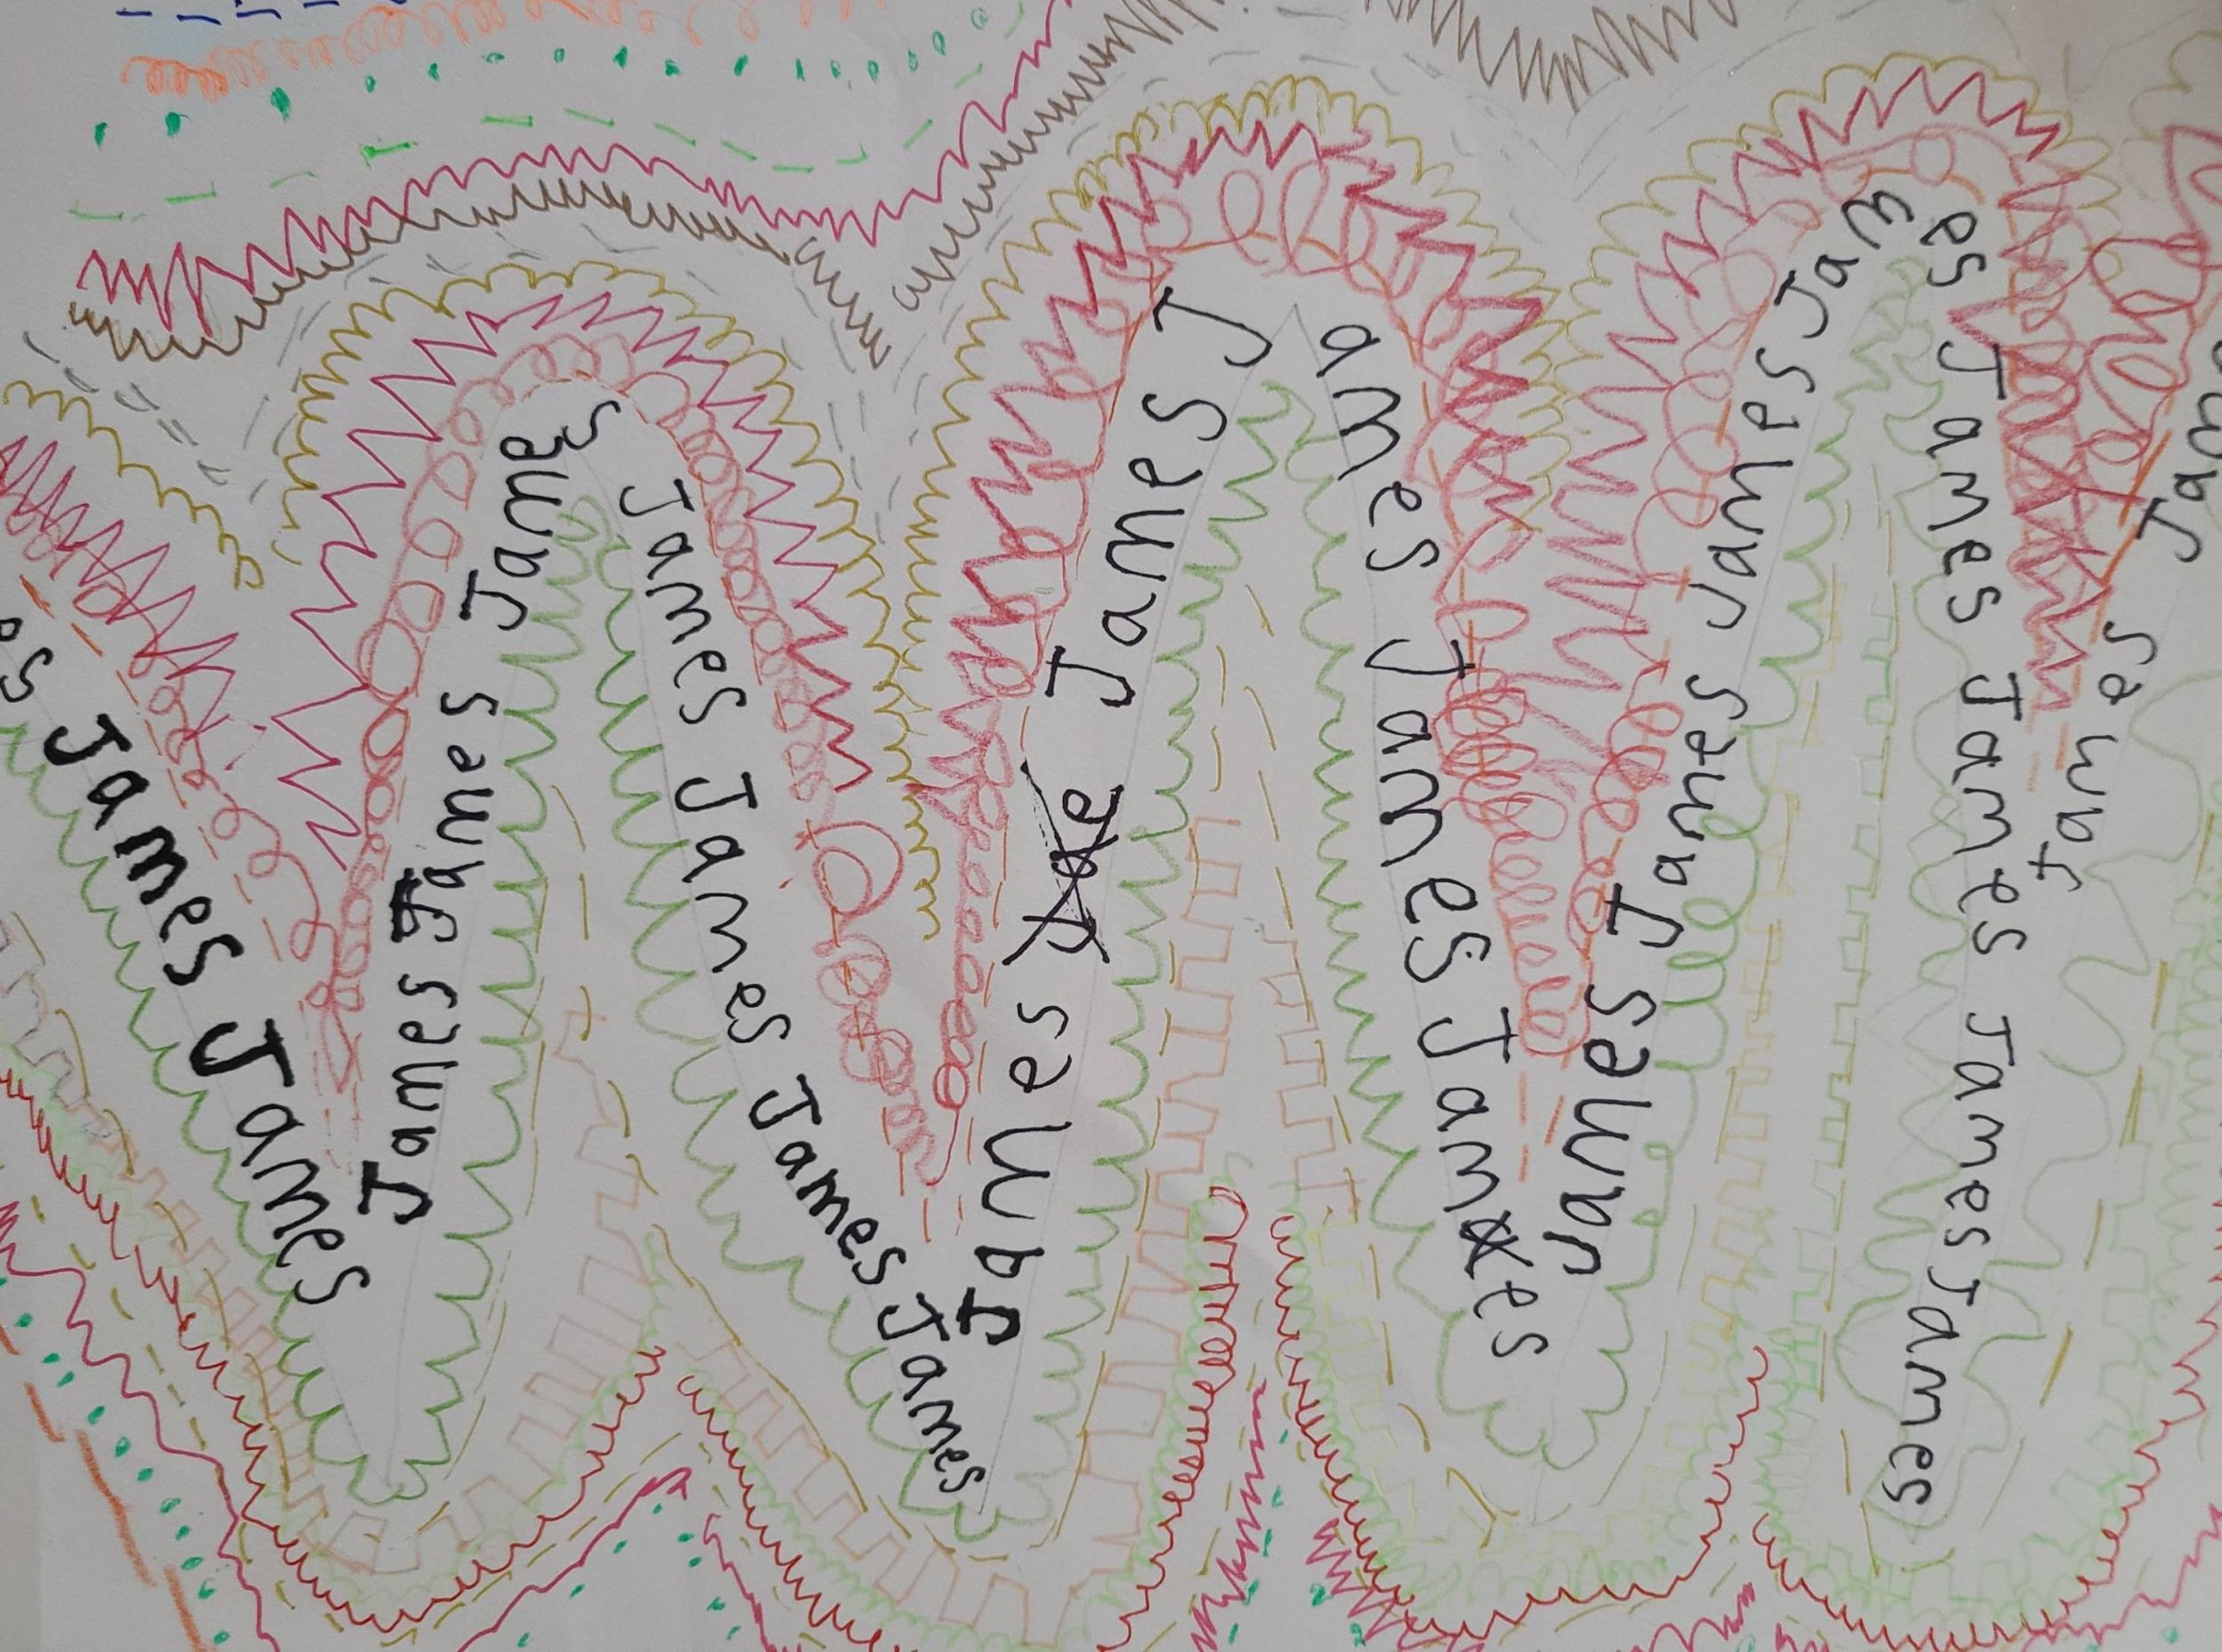 es James James
James James James
James James James James
James Jae James J
ames James James
James James James Jam
es James James James James
James Jam